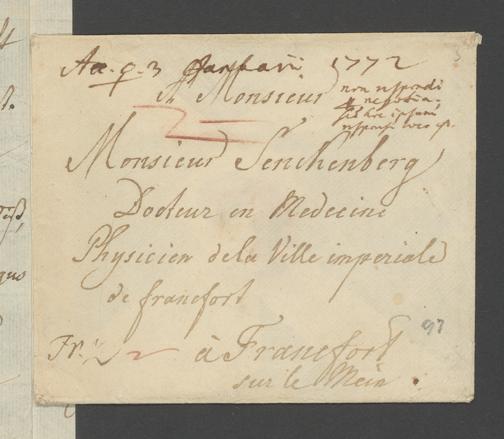 Acc. q. 3 Januarii 1772
A Monsieur
non respondi
negotia,
Monsieur Senckenberg
Docteur en Medecine
Physicien de la Ville imperiale
de francfort
97
à Francfort
sur le Mein.